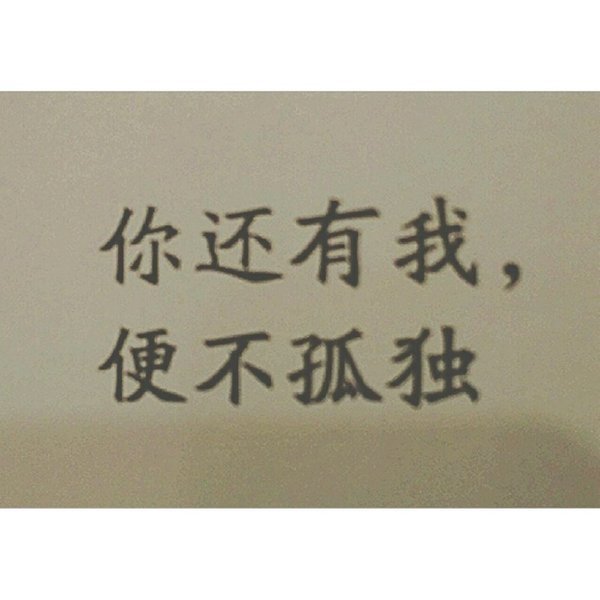 你还有我，
便不孤独